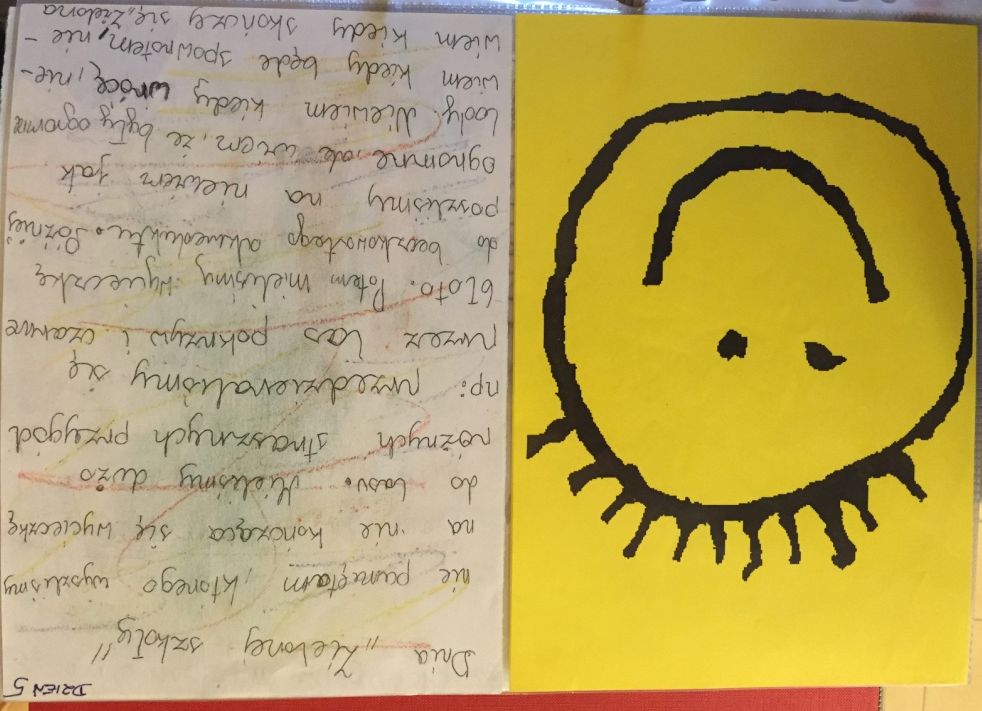 DZIEŃ 5
Dnia „Zielonej szkoły"
nie pamiętam, którego wyszliśmy
na nie kończąca się wycieczkę
do lasu. Mieliśmy dużo
różnych strasznych przygód
np: przedzieraliśmy się
przez las pokrzyw i czarne
błoto. Potem mieliśmy wycieczkę
do beczkowatego akweduktu. Później
poszliśmy na niewiem jak
ogromne, ale wiem, że były ogromne
lody. Niewiem kiedy wrócę, nie-
wiem kiedy będe spowrotem, nie-
wiem kiedy skończy się „Zielona